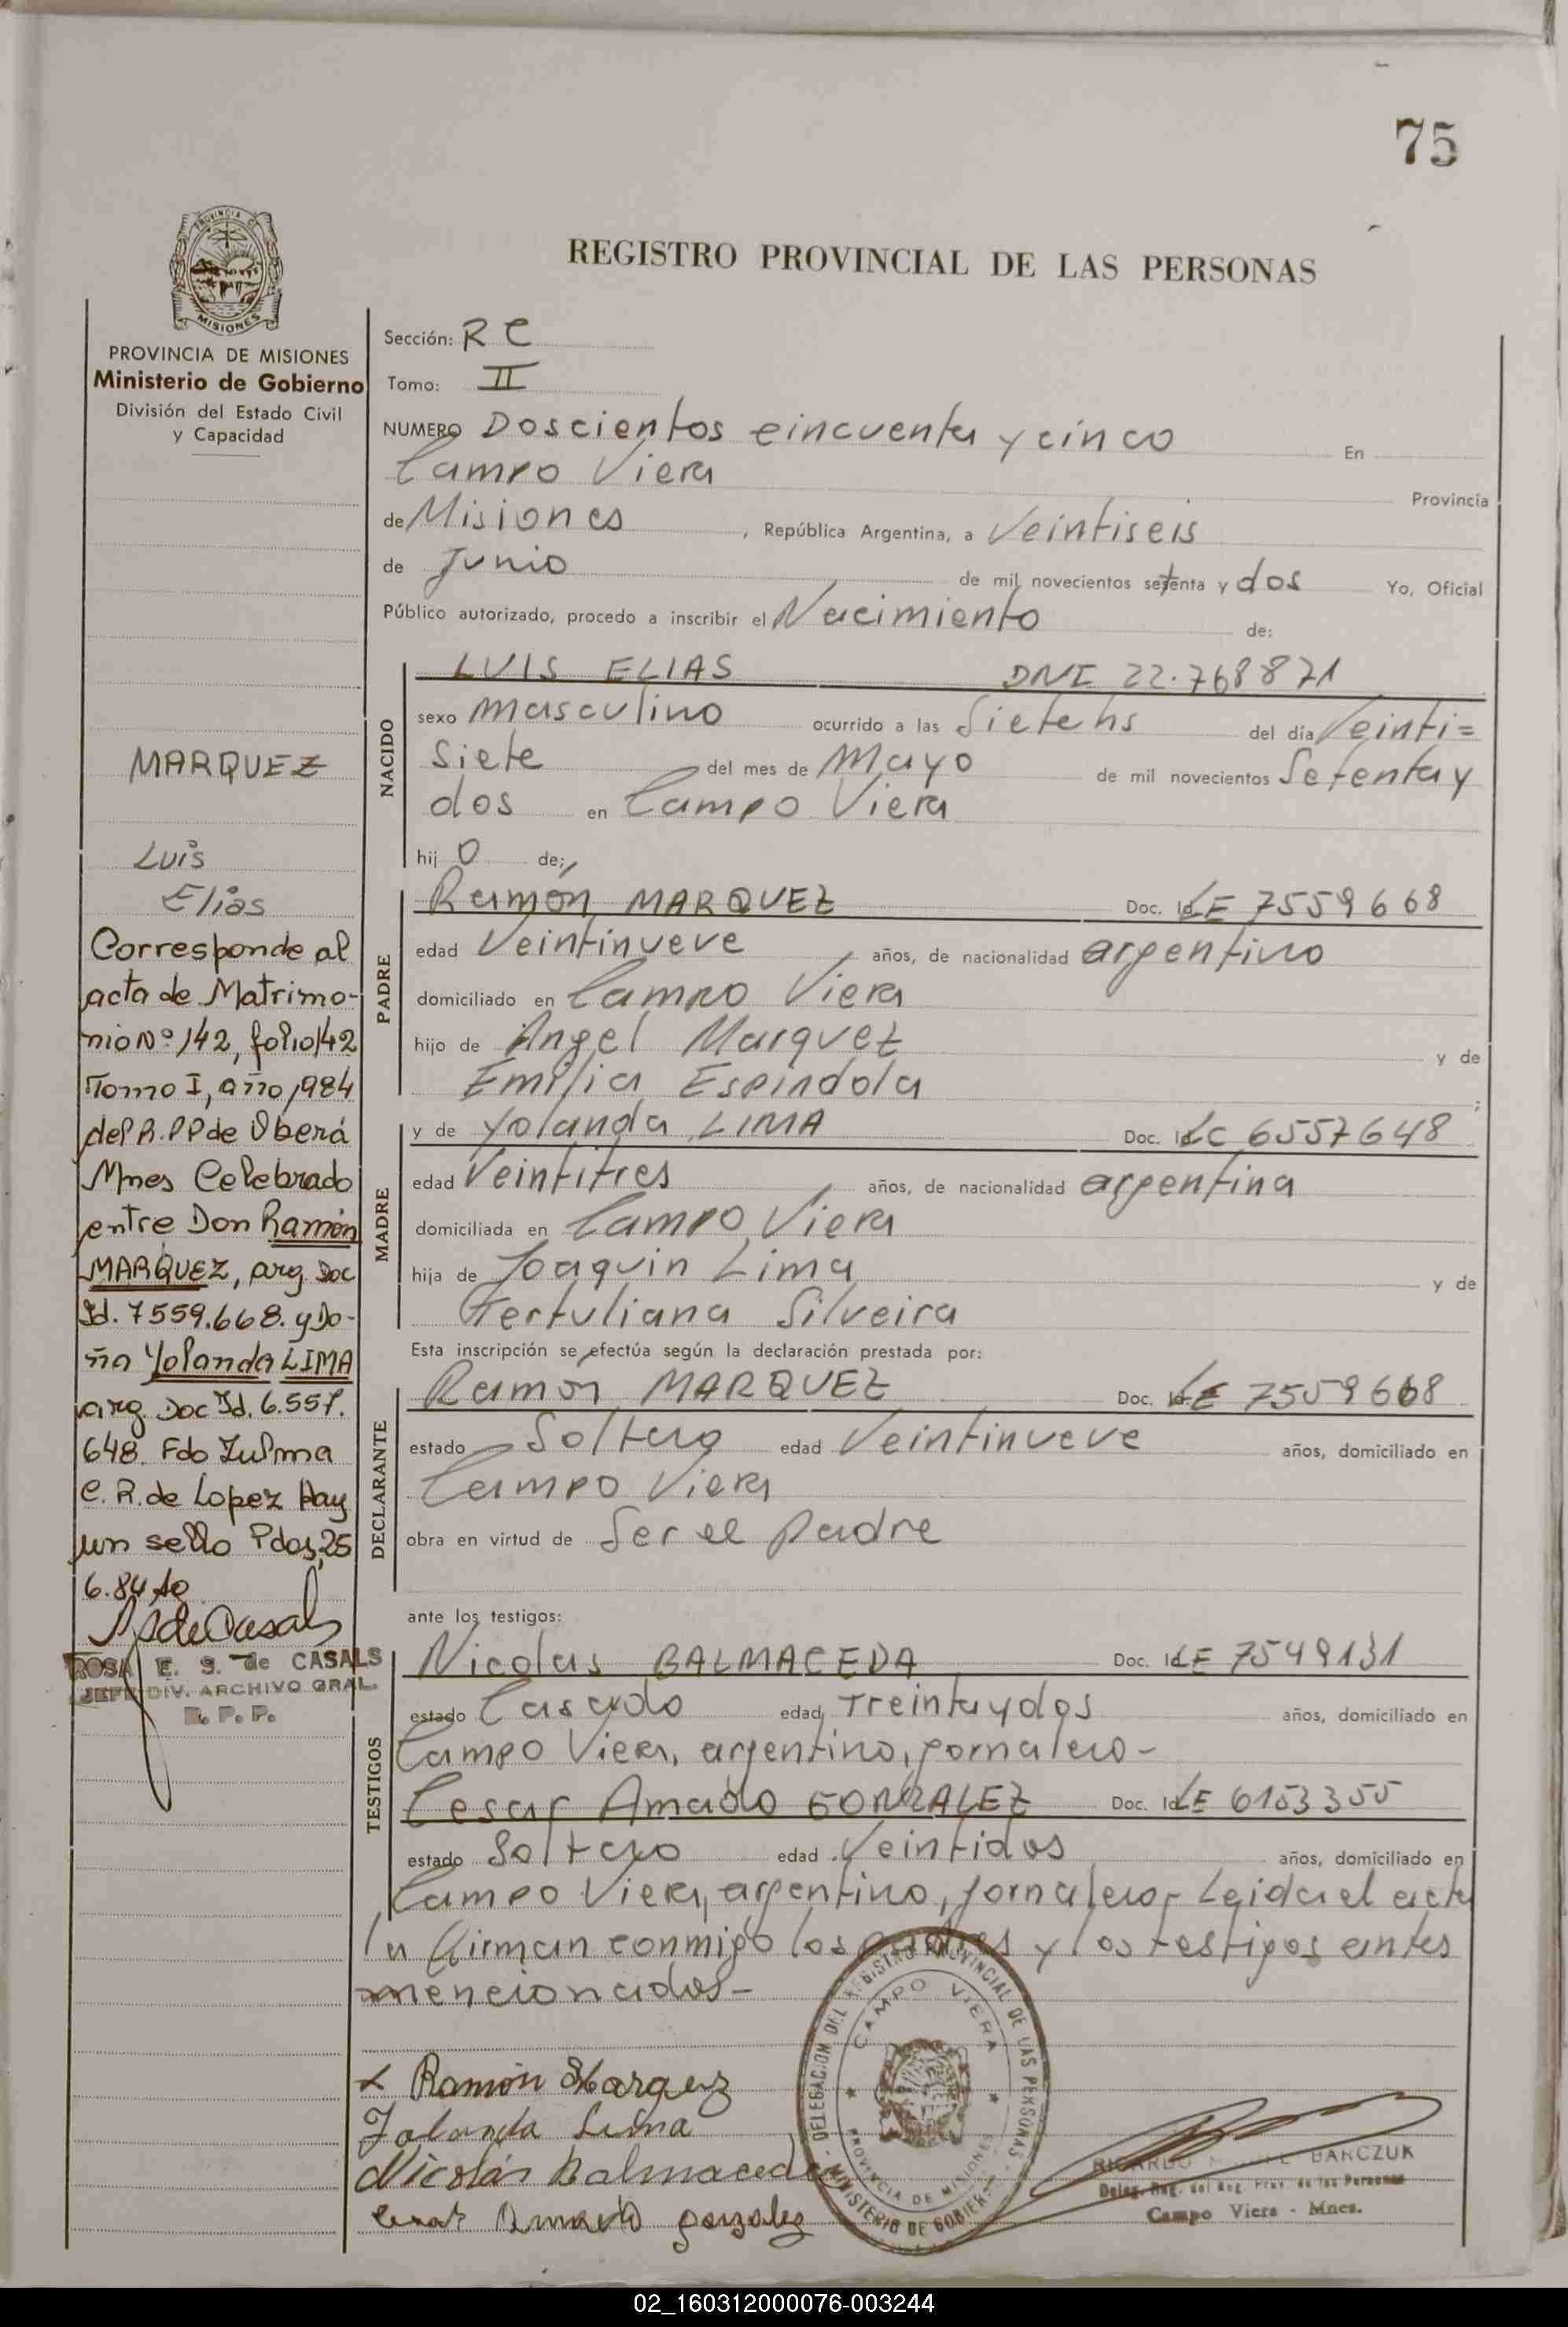 75
REGISTRO PROVINCIAL DE LAS PERSONAS
PROVINCIA DE
MISIONES
PROVINCIA DE MISIONES
Ministerio de Gobierno
División del Estado Civil
y Capacidad
MARQUEZ
Luis
Elias
Corresponde al
acta de Matrimo-
nio Nº 142, folio 142
Tomo I, año 1984
del R.PP de Oberá
Mnes Celebrado
entre Don Ramón
MARQUEZ, arg. Doc
Id. 7559.668. y Do-
ña Yolanda LIMA
arg. Doc Id. 6.557.
648. Fdo Zulma
C. R. de Lopez Hay
un sello Pdas, 25
6.84
ROSA E. S. de CASALS
JEFE DIV. ARCHIVO GRAL.
R. P. P.
Sección: R C
Tomo: II
NUMERO Doscientos cincuenta y cinco En
Campo Viera Provincia
de Misiones , República Argentina, a Veintiseis
de Junio de mil novecientos setenta y dos Yo, Oficial
Público autorizado, procedo a inscribir el Nacimiento de:
NACIDO
LUIS ELIAS DNI 22.768871
sexo masculino ocurrido a las Siete hs del día Veinti=
Siete del mes de Mayo de mil novecientos Setenta y
dos en Campo Viera
hij o de;
PADRE
Ramón MARQUEZ Doc. Id LE 7559668
edad Veintinueve años, de nacionalidad argentino
domiciliado en Campo Viera
hijo de Angel Marquez y de
Emilia Espindola ;
MADRE
y de Yolanda LIMA Doc. Id LC 6557648
edad Veintitres años, de nacionalidad argentina
domiciliada en Campo Viera
hija de Joaquin Lima y de
Tertuliana Silveira
Esta inscripción se efectúa según la declaración prestada por:
DECLARANTE
Ramón MARQUEZ Doc. Id. LE 7559668
estado Soltero edad Veintinueve años, domiciliado en
Campo Viera
obra en virtud de Ser el padre
ante los testigos:
TESTIGOS
Nicolas BALMACEDA Doc. Id LE 7549131
estado Casado edad Treinta y dos años, domiciliado en
Campo Viera, argentino, jornalero-
Cesar Amado GONZALEZ Doc. Id LE 6153355
estado Soltero edad Veintidos años, domiciliado en
Campo Viera, argentino, jornalero- Leida el acta
la firman conmigo los padres y los testigos antes
mencionados-
x Ramón Marquez
Yolanda Lima
Nicolás Balmaceda
Cesar Amado gonzalez
DELEGACION DEL REGISTRO PROVINCIAL DE LAS PERSONAS
CAMPO VIERA
PROVINCIA DE MISIONES
MINISTERIO DE GOBIERNO
RICARDO BARCZUK
Deleg. Reg. del Reg. Prov. de las Personas
Campo Viera - Mnes.
02_160312000076-003244